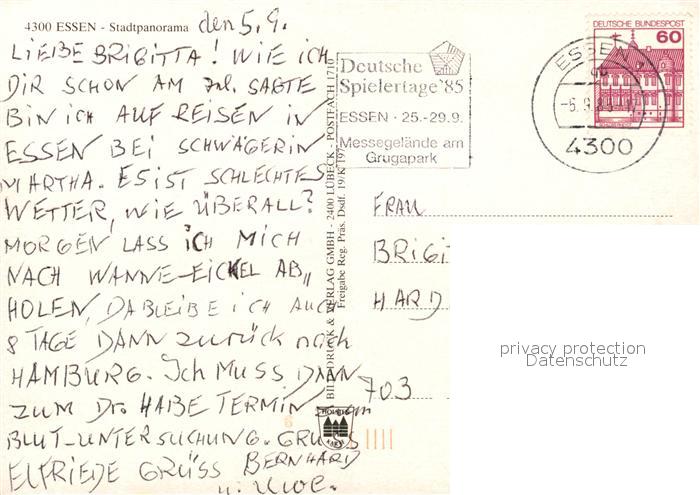 4300 ESSEN - Stadtpanorama
den 5.9.
LIEBE BRIGITTA! WIE ICH
DIR SCHON AM Tel. SAGTE
BIN ICH AUF REISEN IN
ESSEN BEI SCHWÄGERIN
MARTHA. ES IST SCHLECHTES
WETTER, WIE ÜBERALL?
MORGEN LASS ICH MICH
NACH WANNE-EICKEL AB„
HOLEN, DA BLEIBE ICH AUCH
8 TAGE DANN zurück nach
HAMBURG. Ich MUSS DANN
ZUM Dr. HABE TERMIN zum
BLUT-UNTERSUCHUNG. GRUSS
ELFRIEDE GRÜSS BERNHARD
u. Uwe.
BILD DRUCK & VERLAG GMBH - 2400 LÜBECK - POSTFACH 1710
Freigabe Reg. Präs. Dsdf.
Deutsche
Spielertage '85
ESSEN · 25.-29.9.
Messegelände am
Grugapark
DEUTSCHE BUNDESPOST
60
ESSEN
4300
FRAU
BRIGI
HARD
703
privacy protection
Datenschutz